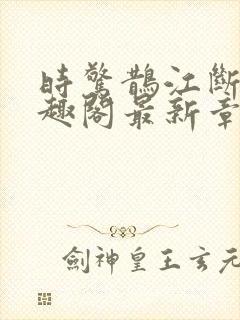 時驚鵲江斷
趣閣最新章
劍神皇王玄元